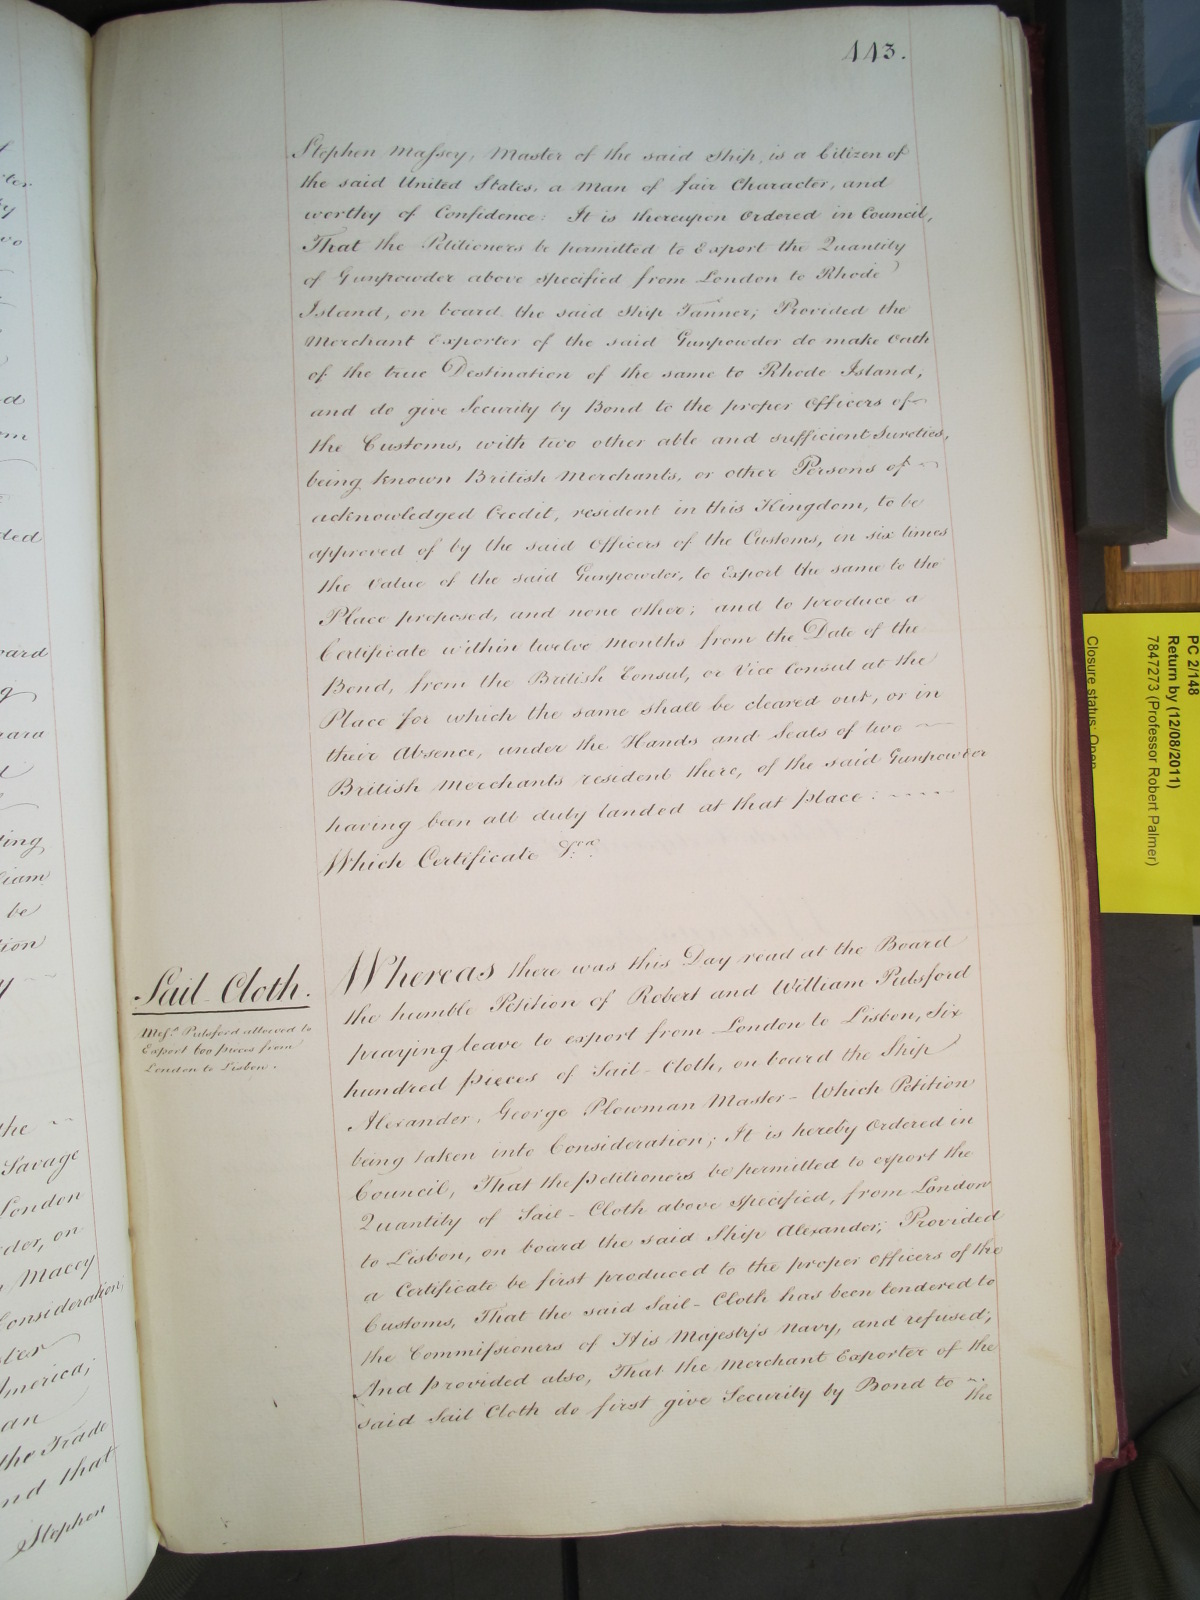 443.
Stephen Massey, Master of the said Ship, is a Citizen of
the said United States, a Man of fair Character, and
worthy of Confidence: It is thereupon Ordered in Council,
That the Petitioners be permitted to Export the Quantity
of Gunpowder above specified from London to Rhode
Island, on board the said Ship Tanner; Provided the
Merchant Exporter of the said Gunpowder do make Oath
of the true Destination of the same to Rhode Island;
and do give Security by Bond to the proper Officers of
the Customs, with two other able and sufficient Sureties,
being known British Merchants, or other Persons of
acknowledged Credit, resident in this Kingdom, to be
approved of by the said Officers of the Customs, in six times
the Value of the said Gunpowder, to Export the same to the
Place proposed, and none other; and to produce a
Certificate within twelve Months from the Date of the
Bond, from the British Consul, or Vice Consul at the
Place for which the same shall be cleared out, or in
their Absence, under the Hands and Seals of two
British Merchants resident there, of the said Gunpowder
having been all duly landed at that Place:
Which Certificate &ca.
Sail-Cloth.
Messrs. Pulsford allowed to
Export 600 pieces from
London to Lisbon.
Whereas there was this Day read at the Board
the humble Petition of Robert and William Pulsford
praying leave to export from London to Lisbon, Six
hundred pieces of Sail-Cloth, on board the Ship
Alexander, George Plowman Master- Which Petition
being taken into Consideration; It is hereby Ordered in
Council, That the Petitioners be permitted to export the
Quantity of Sail-Cloth above specified, from London
to Lisbon, on board the said Ship Alexander; Provided
a Certificate be first produced to the proper Officers of the
Customs, That the said Sail-Cloth has been tendered to
the Commissioners of His Majesty's Navy, and refused;
And provided also, That the Merchant Exporter of the
said Sail Cloth do first give Security by Bond to
the
ded
ting
be
the
Savage
London
Macey
Consideration,
America;
an
the Trade
and that
Stephen
PC 2/148
Return by (12/08/2011)
7847273 (Professor Robert Palmer)
Closure status: Open